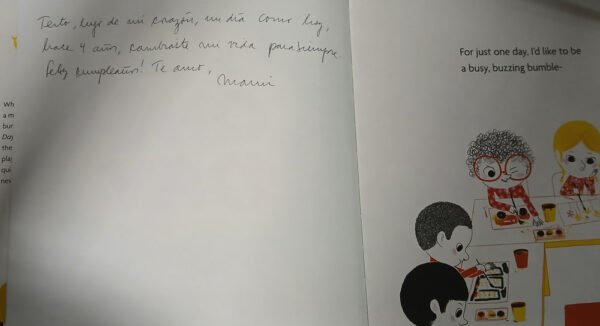 hijo de mi corazón, un día como hoy,
hace 4 años, cambiaste mi vida para siempre.
Feliz cumpleaños! Te amo,
Mami
For just one day, I'd like to be
a busy, buzzing bumble-
Wh
a m
bur
Day
the
play
qui
nev